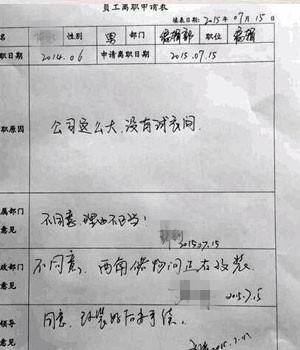 员工离职申请表
填表日期：2015年07月15日
性别 男 部门 编辑部 职位 编辑
职日期 2014.06 申请离职日期 2015.07.15
职原因 公司这么大，没有试衣间。
属部门
意见
不同意，理由不正当！
2015.07.15
政部门
意见
不同意，两角储物间正在改装
2015.7.15
领导
意见
同意，改装好后办手续。